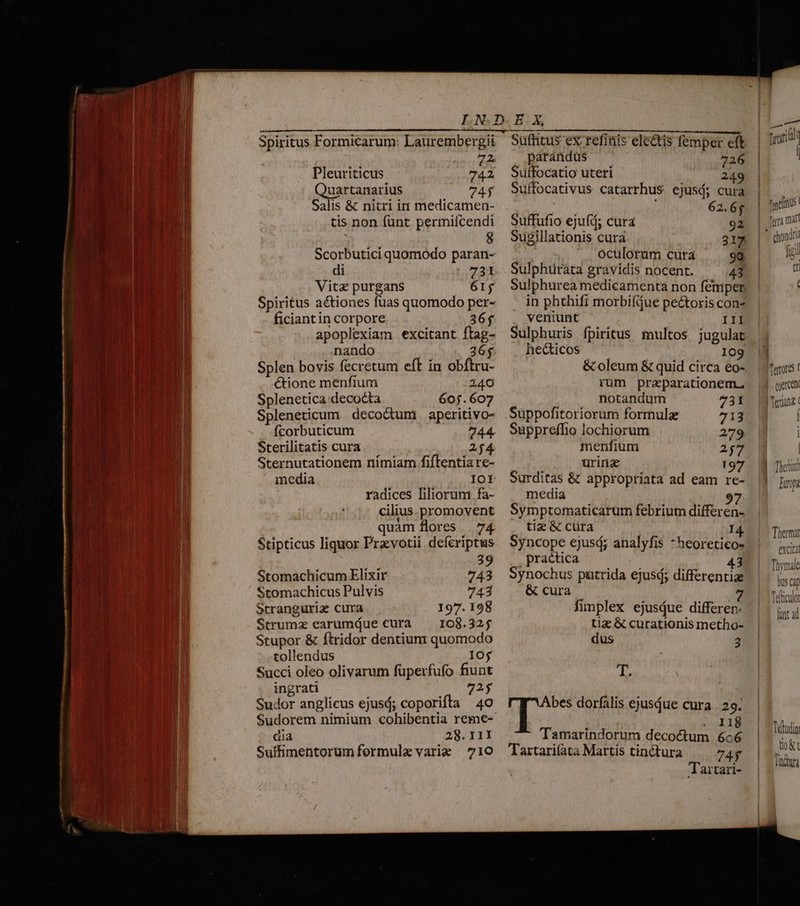 I N D E X,
Spiritus Formicarum Laurembergii
72
Pleuriticus 742
Quartanarius 745
Salis & nitri in medicamen-
tis non ſunt permiſcendi
8
Scorbutici quomodo paran-
di 731
Vitæ purgans 615
Spiritus actiones ſuas quomodo per-
ficiant in corpore 365
apoplexiam excitant ſtag-
nando 365
Splen bovis ſecretum eſt in obſtru-
ctione menſium 240
Splenetica decocta 605.607
Spleneticum decoctum aperitivo-
ſcorbuticum 744
Sterilitatis cura 254
Sternutationem nimiam ſiſtentia re-
media 101
radices liliorum fa-
cilius promovent
quàm flores 74
Stipticus liquor Prævotii deſcriptus
39
Stomachicum Elixir 743
Stomachicus Pulvis 743
Stranguriæ cura 197.198
Strumæ earumque cura 108.325
Stupor & ſtridor dentium quomodo
tollendus 105
Succi oleo olivarum ſuperfuſo fiunt
ingrati 725
Sudor anglicus ejusq; coporiſta 40
Sudorem nimium cohibentia reme-
dia 28.111
Suffimentorum formulæ variæ 710
Suffitus ex reſinis electis ſemper eſt
parandus 726
Suffocatio uteri 249
Suffocativus catarrhus ejusq; cura
62.65
Suffuſio ejuſq; cura 92
Sugillationis cura 317
oculorum cura 90
Sulphurata gravidis nocent. 43
Sulphurea medicamenta non ſemper
in phthiſi morbiſque pectoris con-
veniunt 111
Sulphuris ſpiritus multos jugulat
hecticos 109
& oleum & quid circa eo-
rum præparationem
notandum 731
Suppoſitoriorum formulæ 713
Suppreſſio lochiorum 279
menſium 257
urinæ 197
Surditas & appropriata ad eam re-
media 97
Symptomaticarum febrium differen-
tiæ & cura 14
Syncope ejusq; analyſis theoretico-
practica 43
Synochus putrida ejusq; differentiæ
& cura 7
ſimplex ejusque differen-
tiæ & curationis metho-
dus 3
T.
TAbes dorſalis ejusque cura 29.
118
Tamarindorum decoctum 606
Tartariſata Martis tinctura 745
Tartari-